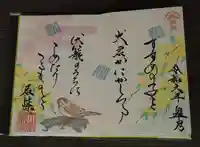 令和六年 皐月
すずめの子を
犬君がにがしつる
伏籠のうちに
こめたりつ
るものを
若紫